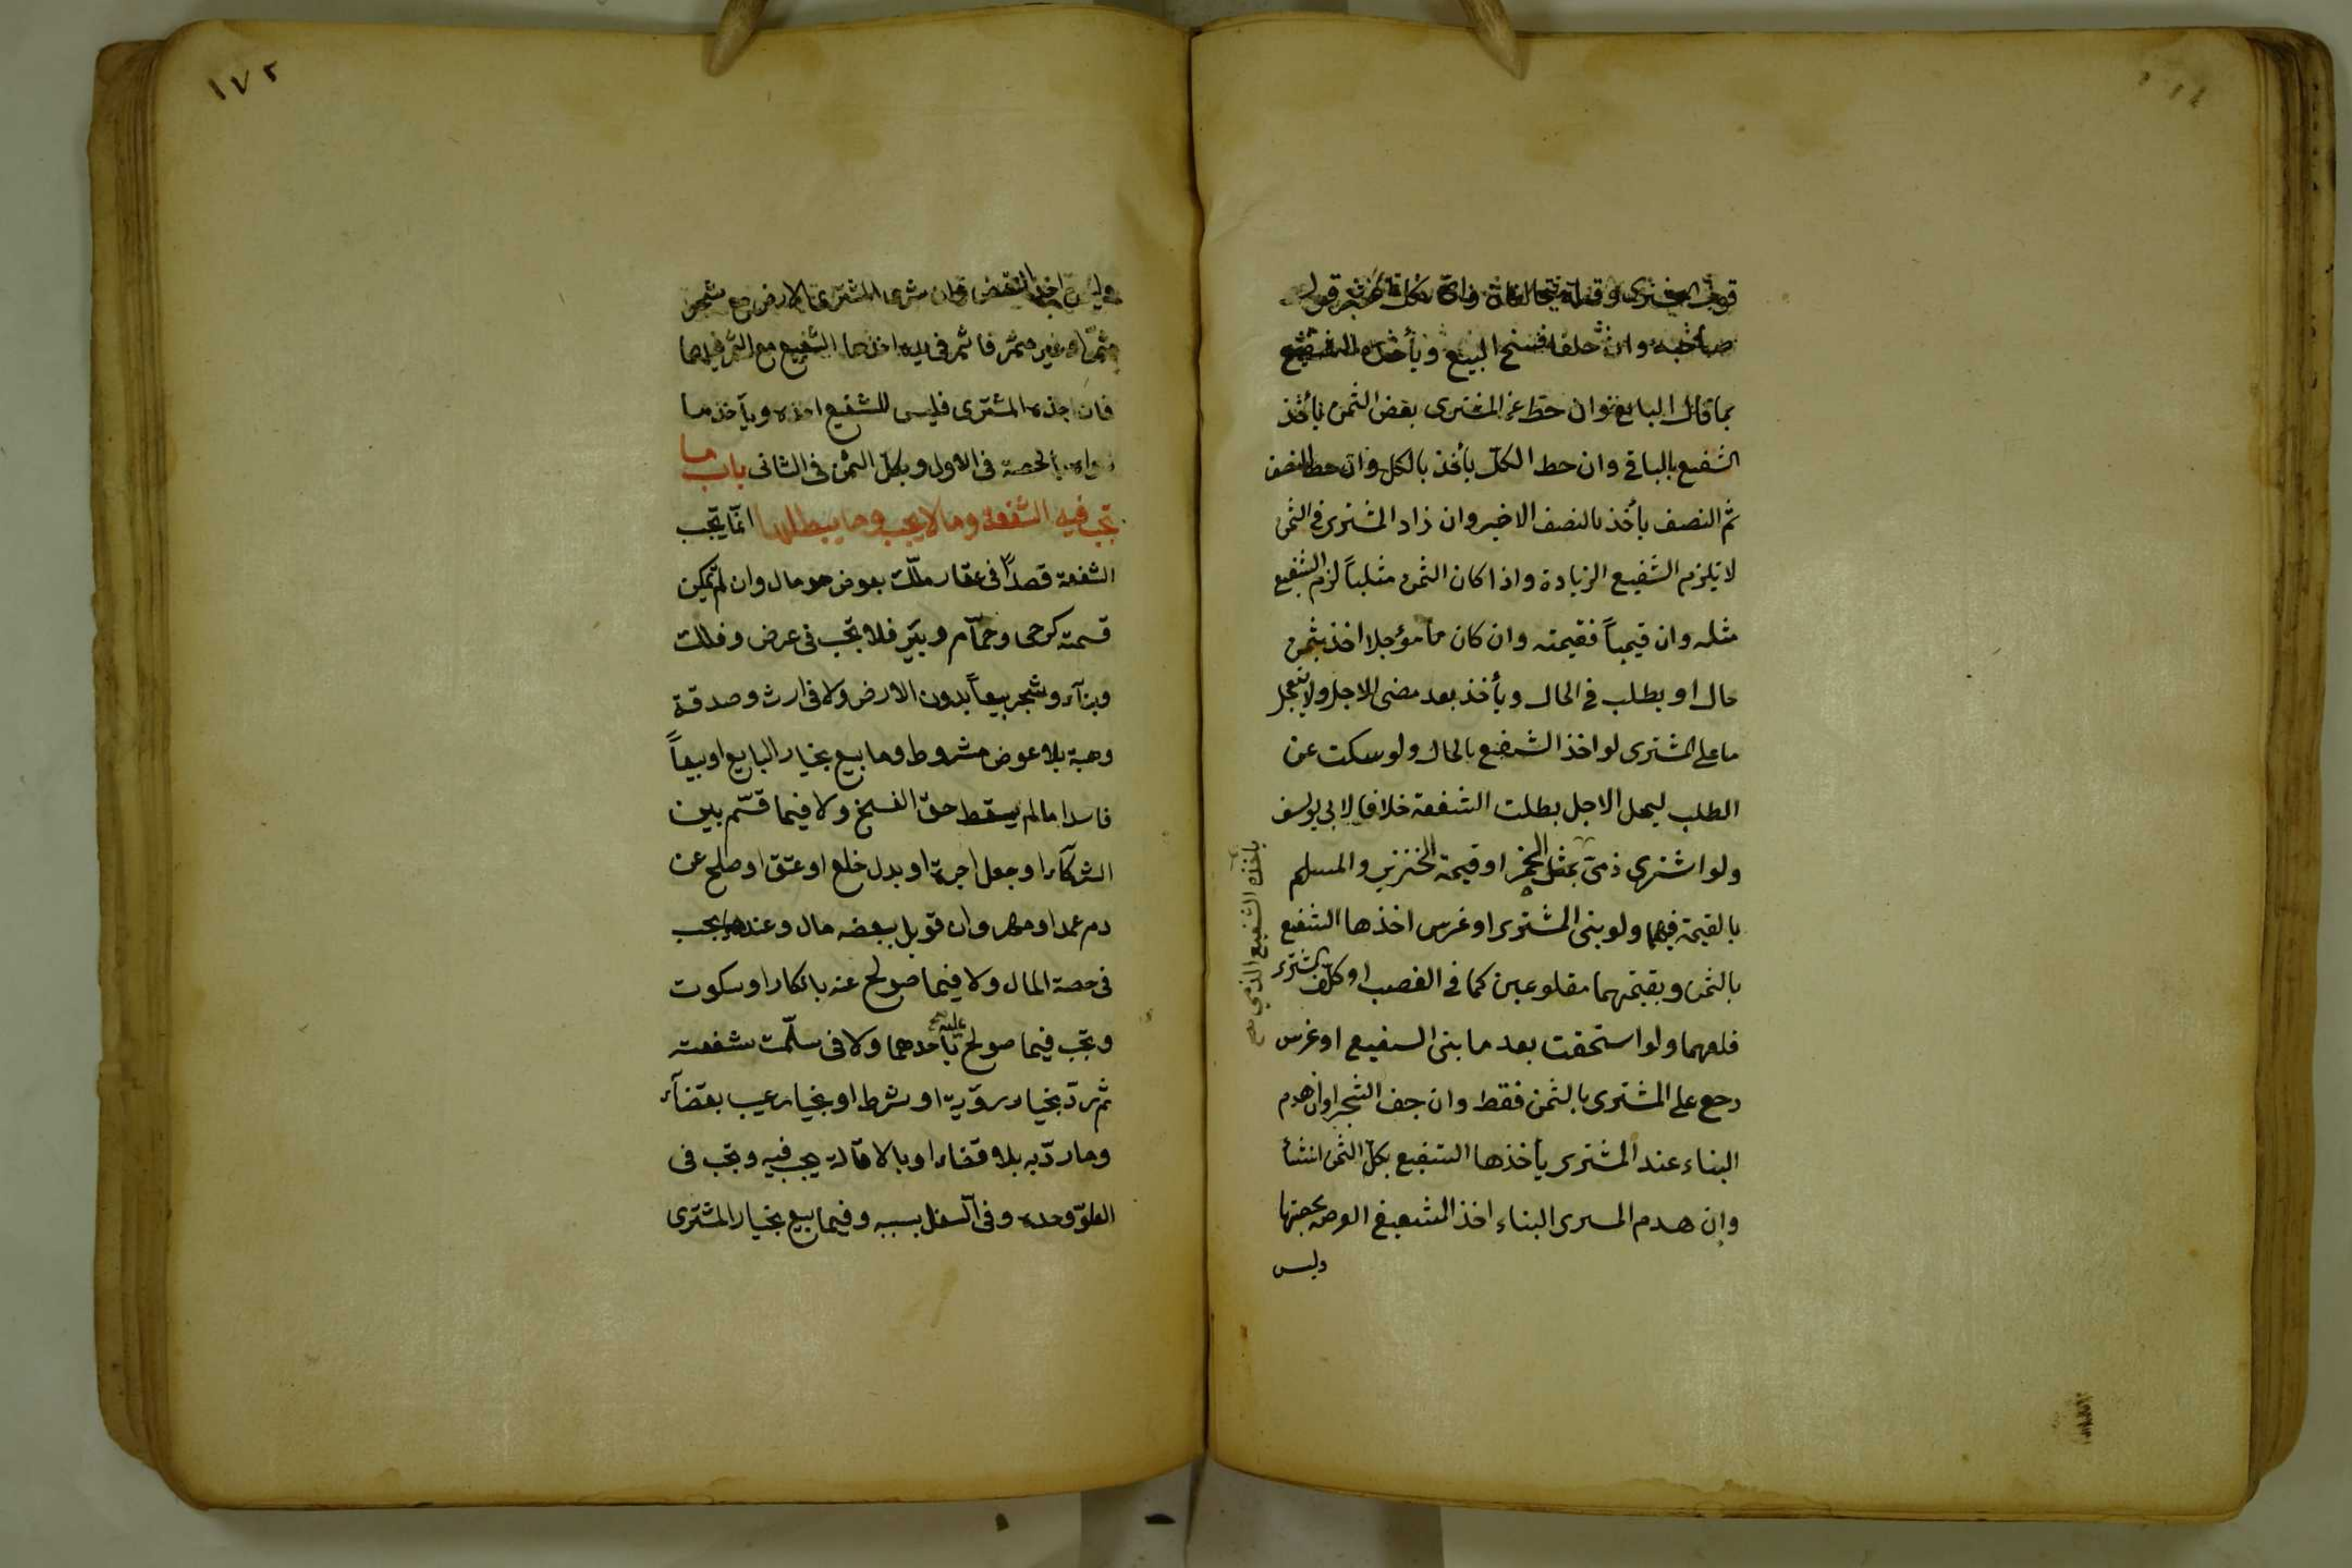 صاحبه وان حلفا فسخ البيع ويأخذه الشفيع
بما قال البايع وان حط عن المشترى بعض الثمن يأخذ
الشفيع بالباقى وان حط الكل يأخذ بالكل وان حط النصف
ثم النصف يأخذ بالنصف الاخير وان زاد المشترى فى الثمن
لا تلزم الشفيع الزيادة واذا كان الثمن مثلياً لزم الشفيع
مثله وان قيمياً فقيمته وان كان مؤجلا اخذ بثمن
حال او يطلب فى الحال ويأخذ بعد مضى الاجل ولا يتعجل
ما على المشترى لو اخذ الشفيع بالحال ولو سكت عن
الطلب ليحل الاجل بطلت الشفعة خلافا لابى يوسف
ولو اشترى ذمى بمثل الخمر او قيمة الخنزير والمسلم
يأخذه الشفيع الذمى صح
بالقيمة فيهما ولو بنى المشترى او غرس اخذها الشفيع
بالثمن وبقيمتهما مقلوعين كما فى الغصب او كلف المشترى
قلعهما ولو استحقت بعد ما بنى الشفيع او غرس
رجع على المشترى بالثمن فقط وان جف الشجر او انهدم
البناء عند المشترى يأخذها الشفيع بكل الثمن ان شأ
وان هدم المشترى البناء اخذ الشفيع العرصة بحصتها
وليس
١٧٢
وليس اخذ النقض وان شرى المشترى الارض مع شجر
مثمر او غير مثمر فاثمر فى يده اخذها الشفيع مع الثمر فيهما
فان اجذه المشترى فليس للشفيع اخذه ويأخذ ما
سواه بالحصة فى الاول وبكل الثمن فى الثانى باب ما
تجب فيه الشفعة وما لا يجب وما يبطلها انما تجب
الشفعة قصداً فى عقار ملك بعوض هو مال وان لم تمكن
قسمته كرحى وحمّام وبئر فلا تجب فى عرض وفلك
وبناء وشجر بيعاً بدون الارض ولا فى ارث وصدقة
وهبة بلا عوض مشروط وما بيع بخيار البايع او بيعاً
فاسدا ما لم يسقط حق الفسخ ولا فيما قسّم بين
الشركاء او جعل اجرة او بدل خلع او عتق او صلح عن
دم عمد او مهر وان قوبل ببعضه مال وعندهما يجب
فى حصة المال ولا فيما صولح عنه بانكار او سكوت
وتجب فيما صولح عليه باحدهما ولا فى سلّمت شفعته
ثم ردّ بخيار رؤية او شرط او بخيار عيب بقضآء
وما ردّ به بلا قضاء او بالاقالة يجب فيه وتجب فى
العلوّ وحده وفى السفل بسببه وفيما بيع بخيار المشترى